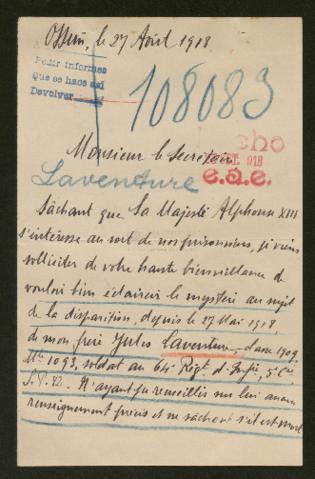 Ossun, le 27 Août 1918
Pedir informes
Que se hace así
Devolver
108083
918
e.a.e.
Monsieur le Secrétaire
Laventure
Sâchant que Sa Majesté Alphonse XIII
s'intéresse au sort de nos prisonniers, je viens
solliciter de votre haute bienveillance de
vouloir bien éclaircir le mystère au sujet
de la disparition, depuis le 27 Mai 1918,
de mon frère Jules Laventure, classe 1909,
Mle 1093, soldat au 64e Régt. d'Infie, 5e Cie,
S.P. 82. N'ayant pu recueillir sur lui aucun
renseignement précis et ne sâchant s'il est mort